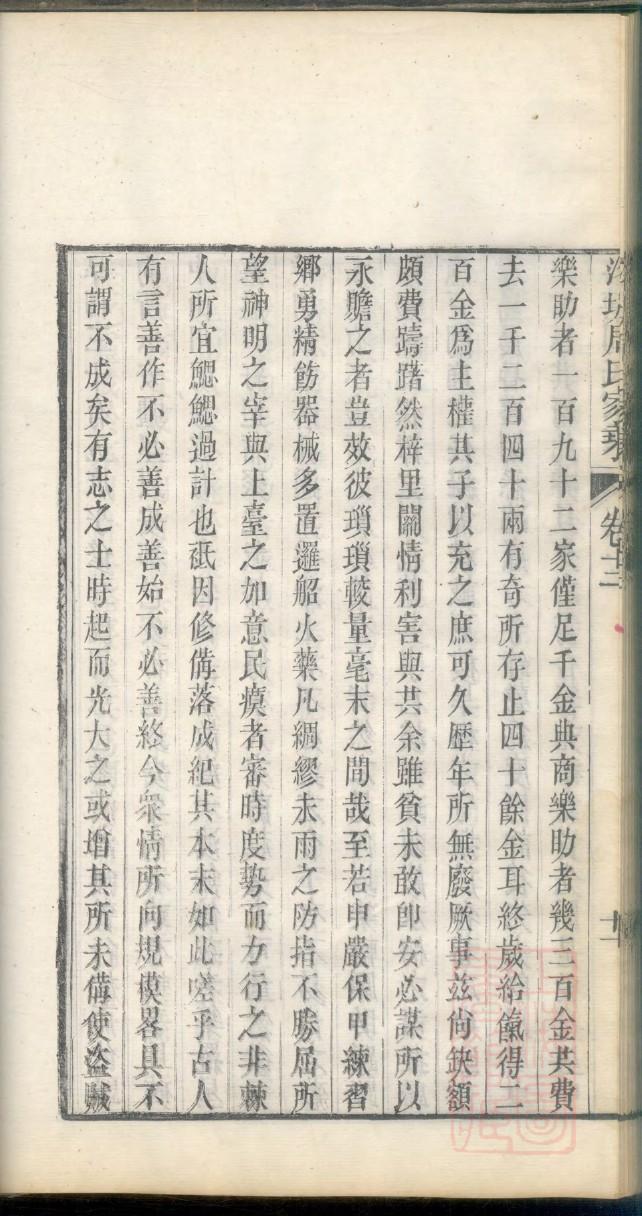 周氏家乘 卷十二 十一
樂助者一百九十二家僅足千金典商樂助者幾三百金共費
去一千二百四十兩有奇所存止四十餘金耳終歲給餼得二
百金爲主權其子以充之庶可久歷年所無廢厥事茲尚缺額
頗費躊躇然梓里關情利害與共余雖貧未敢卽安必謀所以
永贍之者豈效彼瑣瑣較量毫末之間哉至若申嚴保甲練習
鄉勇精飭器械多置邏船火藥凡綢繆未雨之防指不勝屈所
望神明之宰與上臺之如意民瘼者審時度勢而力行之非棘
人所宜鰓鰓過計也祗因修備落成紀其本末如此嗟乎古人
有言善作不必善成善始不必善終今衆情所向規模畧具不
可謂不成矣有志之士時起而光大之或增其所未備使盜賊